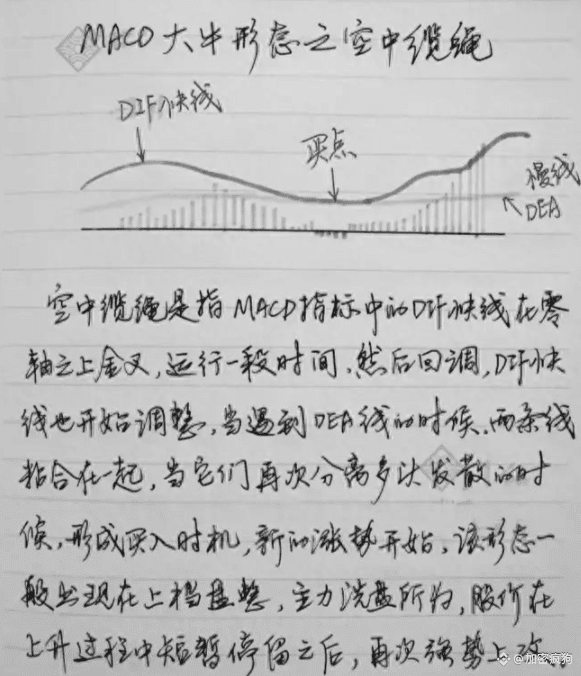 MACD大牛形态之空中缆绳
DIF快线
买点
慢线
DEA
空中缆绳是指MACD指标中的DIF快线在零
轴之上金叉，运行一段时间，然后回调，DIF快
线也开始调整，当遇到DEA线的时候，两条线
粘合在一起，当它们再次分离多头发散的时
候，形成买入时机，新的涨势开始，该形态一
般出现在上档盘整，主力洗盘所为，股价在
上升过程中短暂停留之后，再次强势上攻。
@加密疯狗